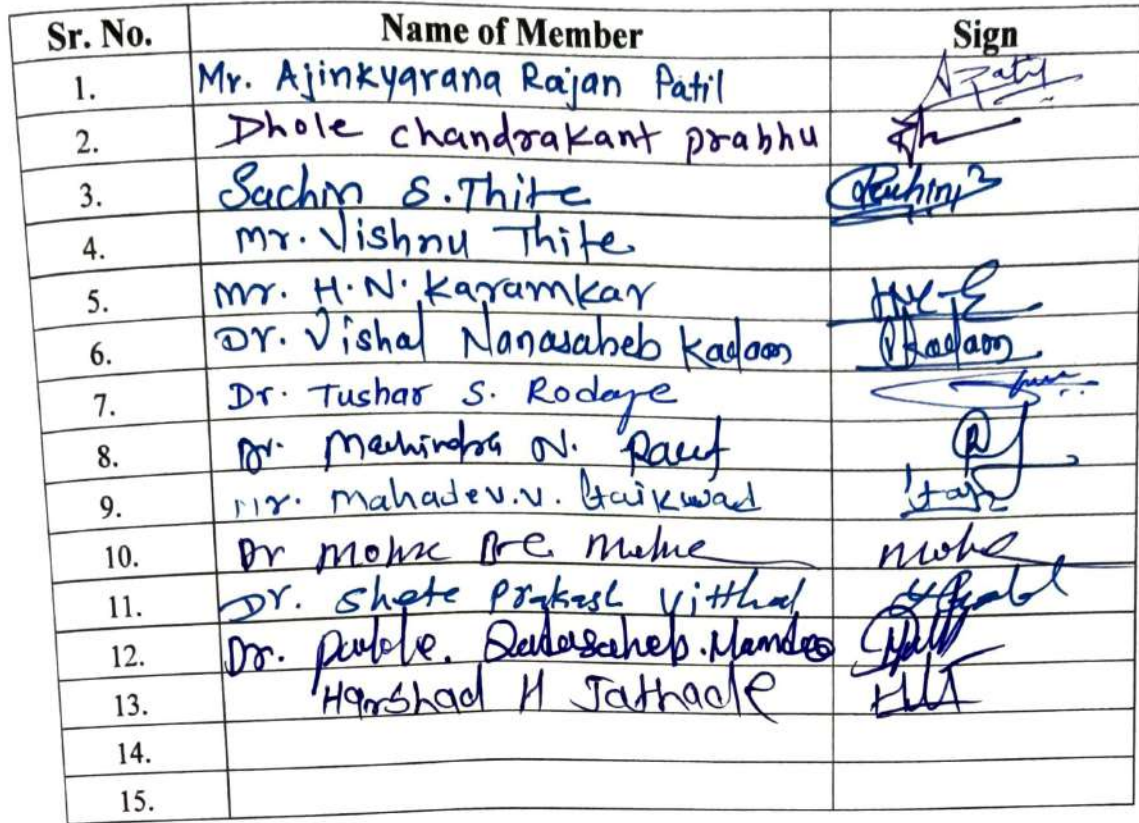 Sr. No. Name of Member Sign
1. Mr. Ajinkyarana Rajan Patil A Patil
2. Dhole chandrakant prabhu
3. Sachin S. Thite
4. mr. Vishnu Thite
5. mr. H.N. Karamkar
6. Dr. Vishal Nanasaheb Kadam VKadam
7. Dr. Tushar S. Rodage
8. Dr. Machindra N. Raut
9. Mr. Mahadev.V. Gaikwad
10. Dr Mohite
11. Dr. Shete Prakash Vitthal
12. Dr. Dadasaheb.
13. Harshad H Jathade HHJ
14.
15.